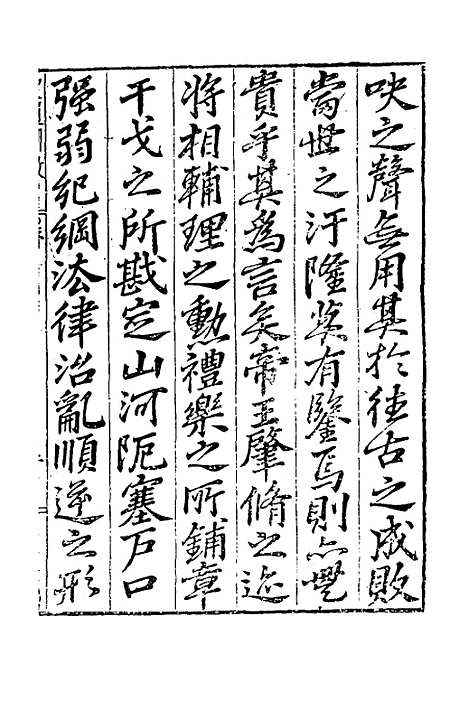 吷之聲無用其於往古之成敗
當世之汙隆莫有鑒焉則亦畢
貴乎其為言矣帝王肇脩之迹
將相輔理之勲禮樂之所鋪章
干戈之所戡定山河阨塞戶口
强弱紀綱法律治亂順逆之形